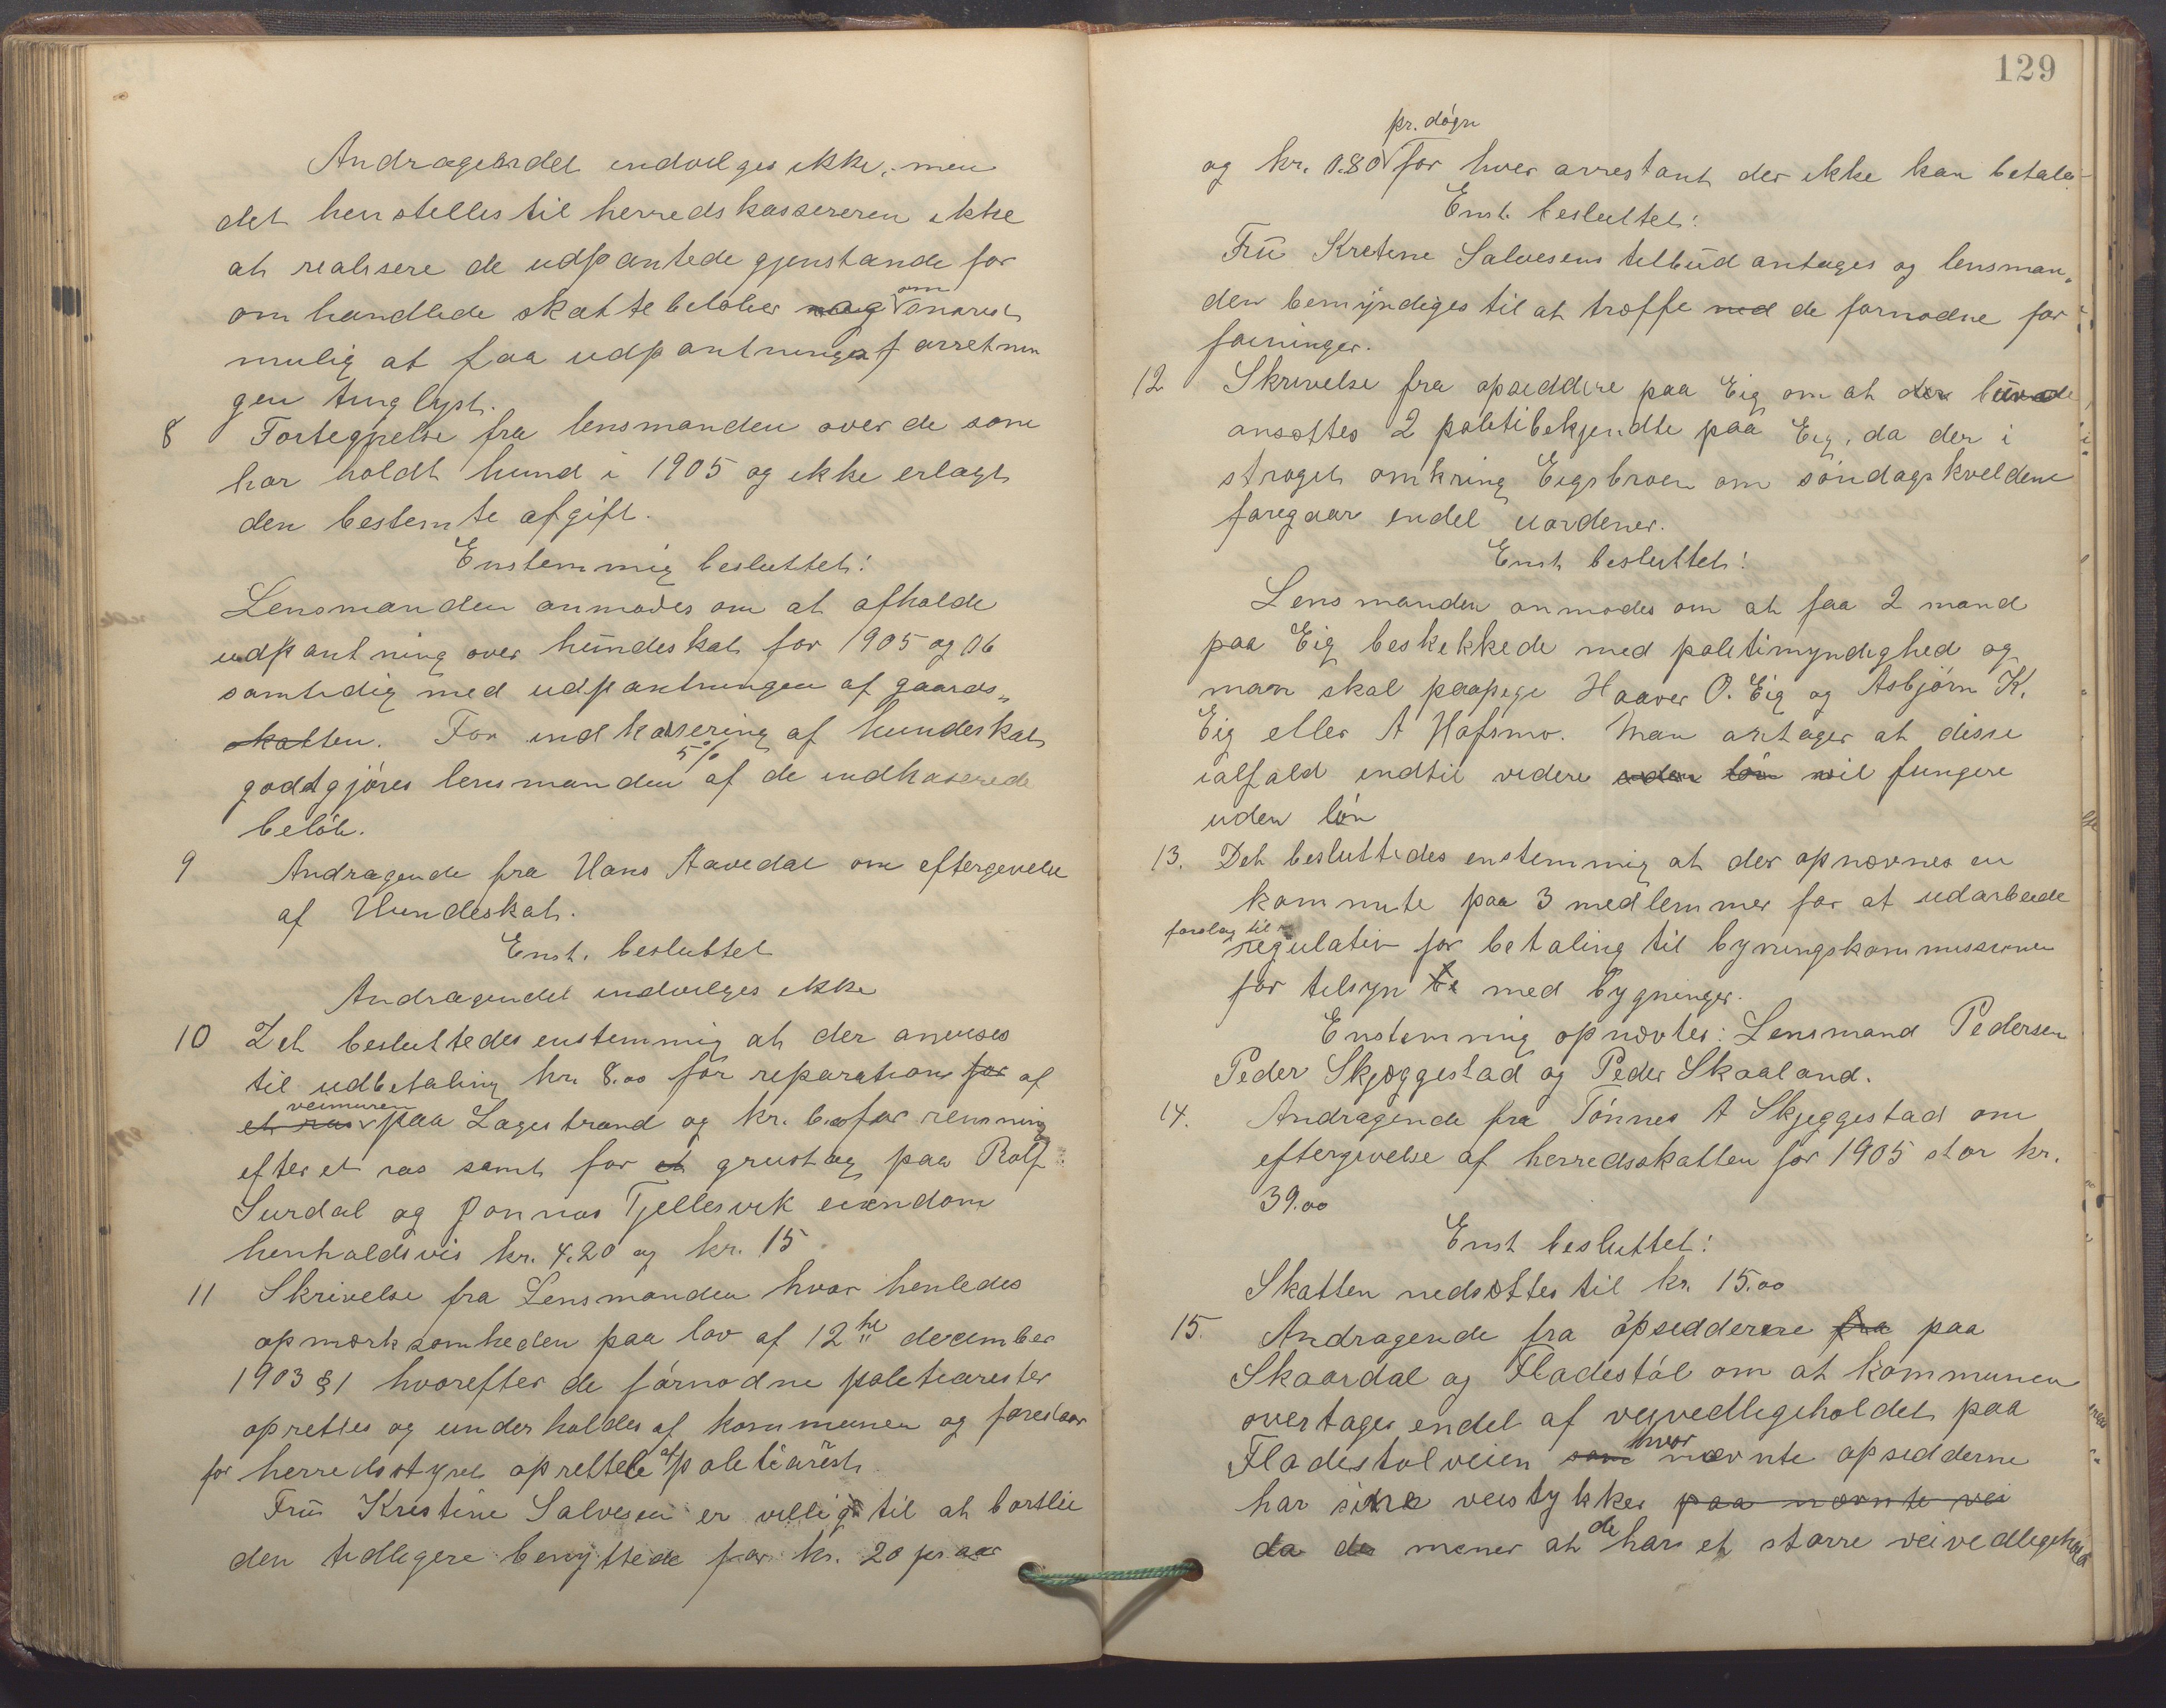 Andragendet indvilges ikke, men
det henstilles til herredskassereren ikke
at realisere de udpantede gjenstande for
om handlede skattebeløber om snarest
mulig at faa udpantningsforretnin
gen tinglyst.
8 Fortegnelse fra lensmanden over de som
har holdt hund i 1905 og ikke erlagt
den bestemte afgift.
Enstemmig besluttet:
Lensmanden anmodes om at afholde
udpantning over hundeskat for 1905 og 06
samtidig med udpantningen af gaards„
skatten. For indkassering af hundeskat
godtgjøres lensmanden 5% af de indkasserede
beløb.
9 Andragende fra Hans Aavedal om eftergivelse
af Hundeskat.
Enst. besluttet
Andragendet indvilges ikke
10 Det besluttedes enstemmig at der anvises
til udbetaling kr. 8.00 for reparation for af
et ras veimuren paa Lagestrand og kr. for remning
efter et ras samt for et grustag paa Rolf
Surdal og Jonnas Tjellesvik eiendom
henholdsvis kr. 4.20 og kr. 15
11 Skrivelse fra Lensmanden hvor henledes
opmerksomheden paa lov af 12te december
1903 § 1 hvorefter de fornødne politiarester
oprettes og underholdes af kommunen og foreslaar
for herredsstyret oprettele af politiarest.
Fru Kristine Salvesen er villig til at bortleie
den tidligere benyttede for kr. 20 pr aar
129
pr. døgn
og kr. 0.80 for hver arrestant der ikke kan betale
Enst. besluttet:
Fru Kristine Salvesens tilbud antages og lensman„
den bemyndiges til at træffe ned de fornødne for
føininger.
12 Skrivelse fra opsiddere paa Eig om at der burde
ansættes 2 politibekjendte paa Eig, da der i
strøget omkring Eigsbroen om søndags kveldene
foregaar endel uordener.
Enst besluttet:
Lensmanden anmodes om at faa 2 mand
paa Eig beskikkede med politimyndighed og
man skal paapege Haaver O. Eig og Asbjørn K.
Eig eller A Hafsmo. Man antager at disse
ialfald indtil videre uden løn vil fungere
uden løn
13. Det besluttedes enstemmig at der opnævnes en
kommite paa 3 medlemmer for at udarbeide
forslag til
regulativ for betaling til bygningskommissionen
for tilsyn med bygninger.
Enstemmig opnævtes: Lensmand Pedersen
Peder Skjæggestad og Peder Skaaland.
14. Andragende fra Tønnes A Skjeggestad om
eftergivelse af herredsskatten for 1905 stor kr.
39.00
Enst besluttet:
Skatten nedsættes til kr. 15.00
15. Andragende fra opsidderne fra paa
Skaardal og Fladestøl om at kommunen
overtager endel af veivedligeholdet paa
Fladestølveien som hvor nævnte opsidderne
har sine veistykker paa nævnte vei
da de mener at de har et større veivedligehold